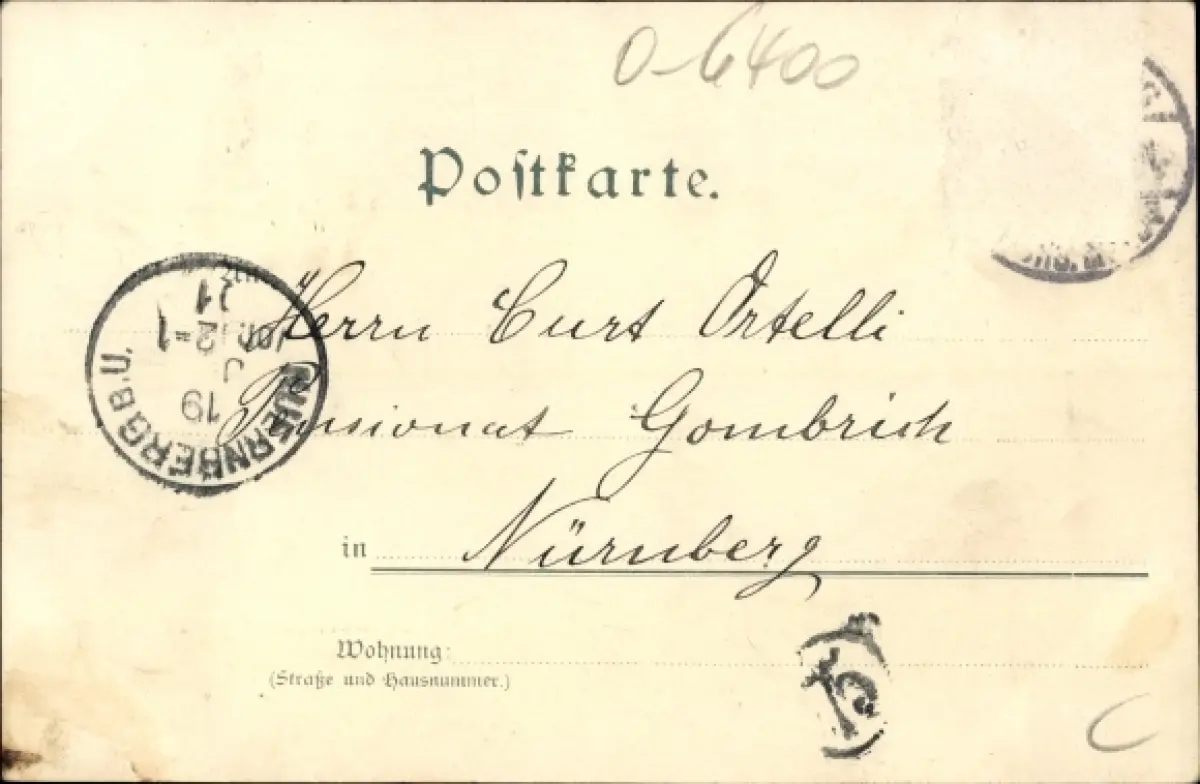 0-6400
Postkarte.
Herrn Curt Ortelli
Pensionat Gombrich
in Nürnberg
Wohnung:
(Straße und Hausnummer.)
NUERNBERG B.U.
19
C